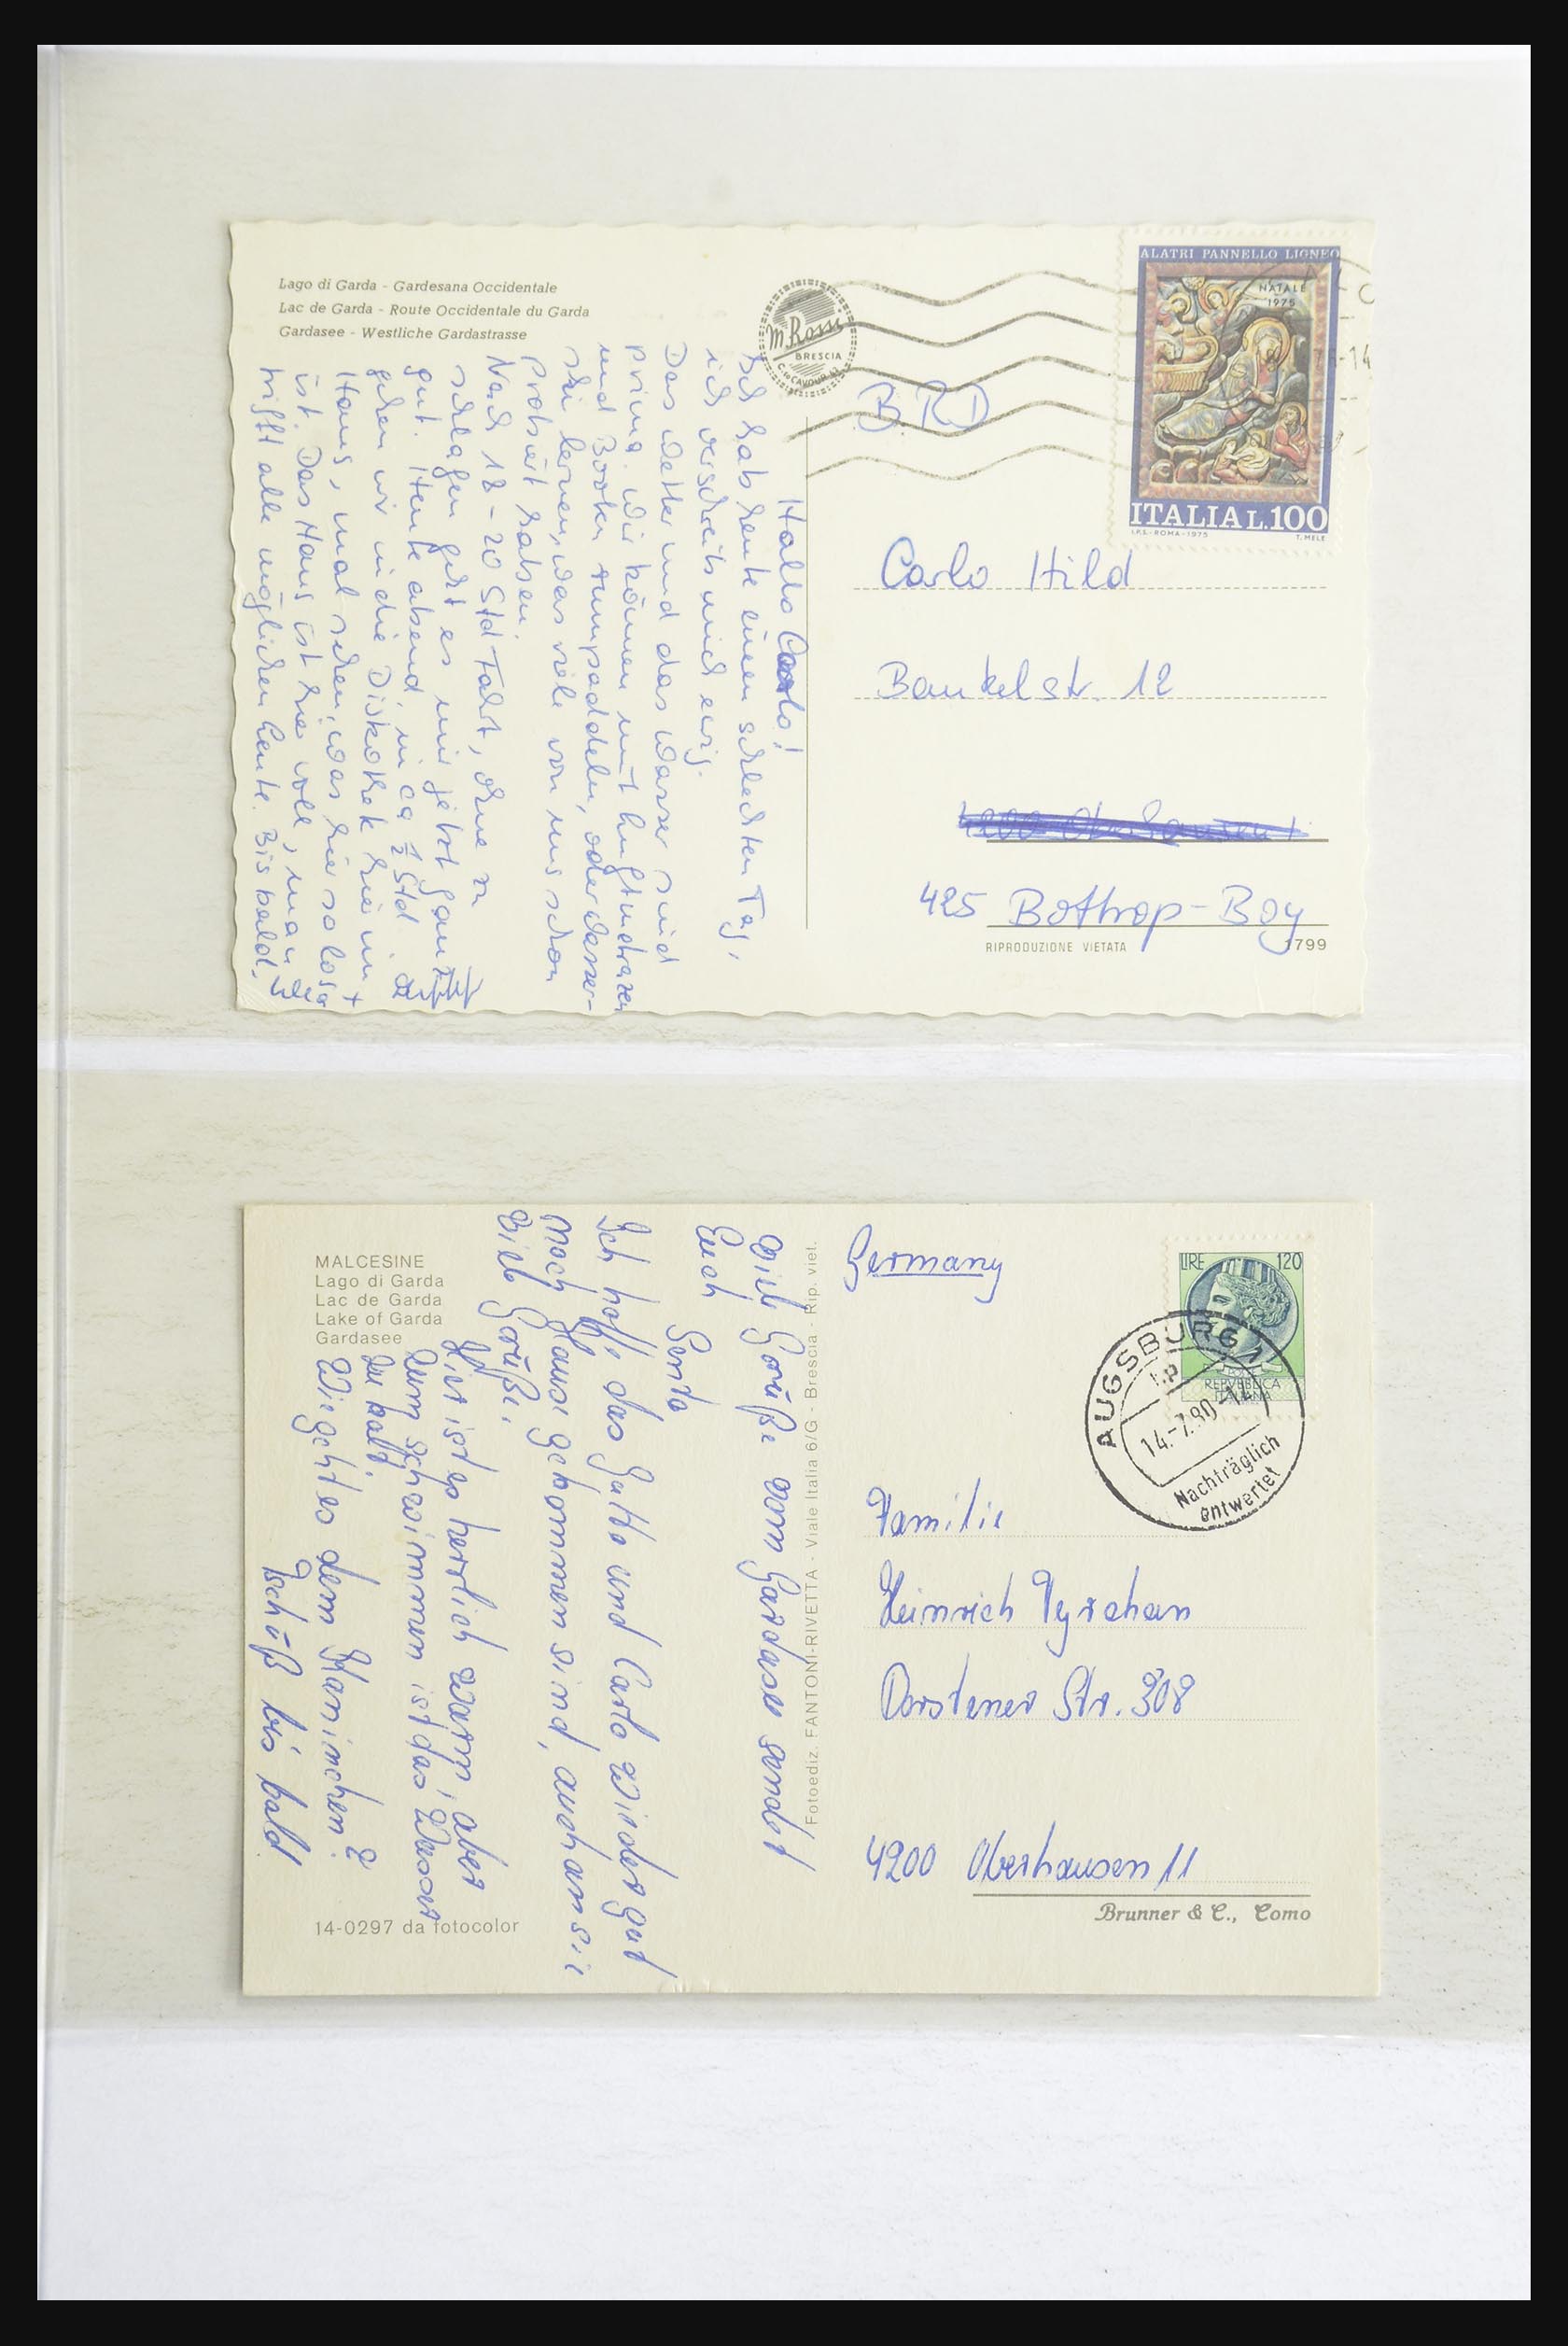 Lago di Garda - Gardesana Occidentale
Lac de Garda - Route Occidentale du Garda
Gardasee - Westliche Gardastrasse
m. Rossi
BRESCIA
C.so CAVOUR
ALATRI PANNELLO LIGNEO
NATALE
1975
ITALIA L.100
I.P.S.-ROMA-1975 T. MELE
BRD
Carlo Hild
Bankelstr. 12
425 Bottrop-Boy
RIPRODUZIONE VIETATA 1799
Hallo Carlo!
Ich hab heute einen schlechten Tag,
ich verschreib mich ewig.
Das Wetter und das Wasser sind
prima. Wir können mit Luftmatrazen
und Booten rumpaddeln, oder Wasser-
ski lernen, was viele von uns schon
probiert haben.
Nach 18-20 Std Fahrt, ohne zu
schlafen geht es mir jetzt ganz
gut. Heute abend, in ca ½ Std.
gehen wir in die Diskothek hier im
Haus, mal sehen, was hier so los
ist. Das Haus ist hier voll, man
trifft alle möglichen Leute. Bis bald.
MALCESINE
Lago di Garda
Lac de Garda
Lake of Garda
Gardasee
14-0297 da fotocolor
Fotoediz. FANTONI-RIVETTA - Viale Italia 6/G - Brescia - Rip. viet.
Germany
LIRE 120
REPVBBLICA
ITALIANA
AUGSBURG 1
14.-7.80-14
Nachträglich
entwertet
Familie
Heinrich Tyrchan
Dorstener Str. 308
4200 Oberhausen 11
Brunner & C., Como
Viele Grüße vom Gardasee sendet
Euch
Senta
Ich hoffe das Gutte und Carlo wieder gut
nach Hause gekommen sind, auch an sie
viele Grüße.
Hier ist es herrlich warm, aber
zum schwimmen ist das Wasser
zu kalt.
Wie geht es dem Haninchen?
Tschüß bis bald